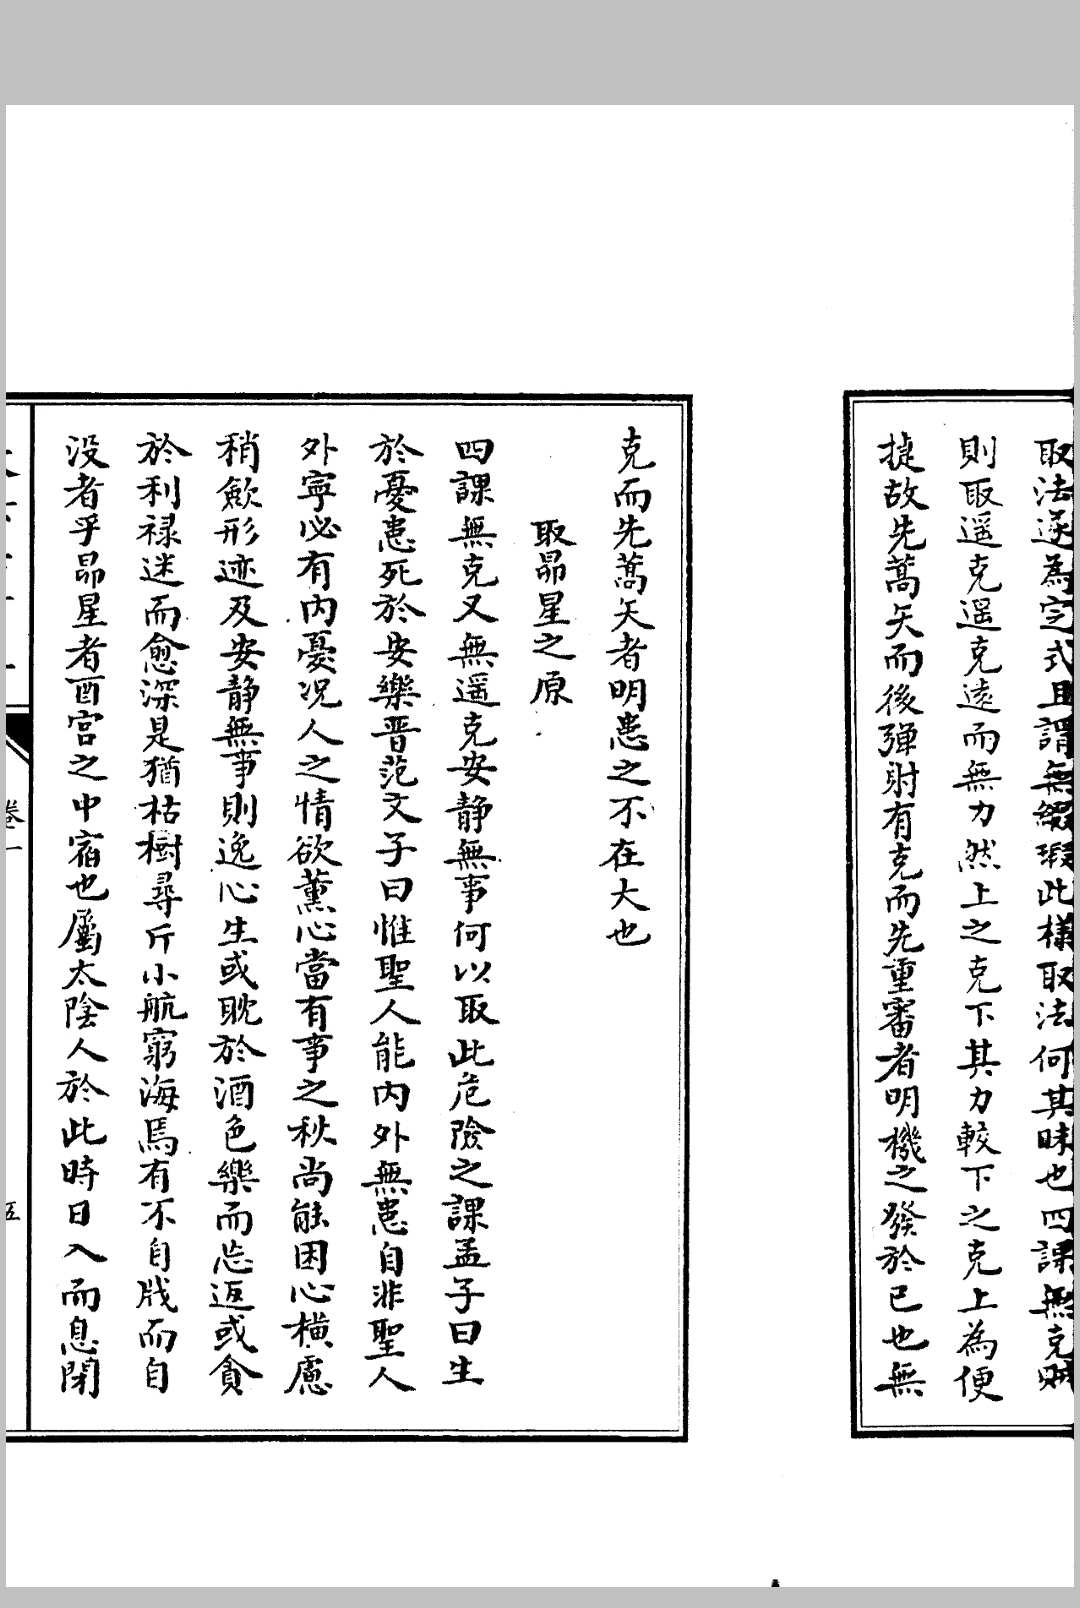 取法遂為定式且謂無綴瑕此樣取法何其昧也四課無克賊
則取遥克遥克遠而無力然上之克下其力較下之克上為便
捷故先蒿矢而後彈射有克而先重審者明機之發於已也無
克而先蒿矢者明患之不在大也
取昴星之原
四課無克又無遥克安静無事何以取此危險之課孟子曰生
於憂患死於安樂晋范文子曰惟聖人能内外無患自非聖人
外寧必有内憂况人之情欲薰心當有事之秋尚能困心横慮
稍歛形迹及安静無事則逸心生或耽於酒色樂而忘返或貪
於利禄迷而愈深是猶枯樹尋斤小航窮海焉有不自戕而自
没者乎昴星者酉宫之中宿也屬太陰人於此時日入而息閉
卷一
五